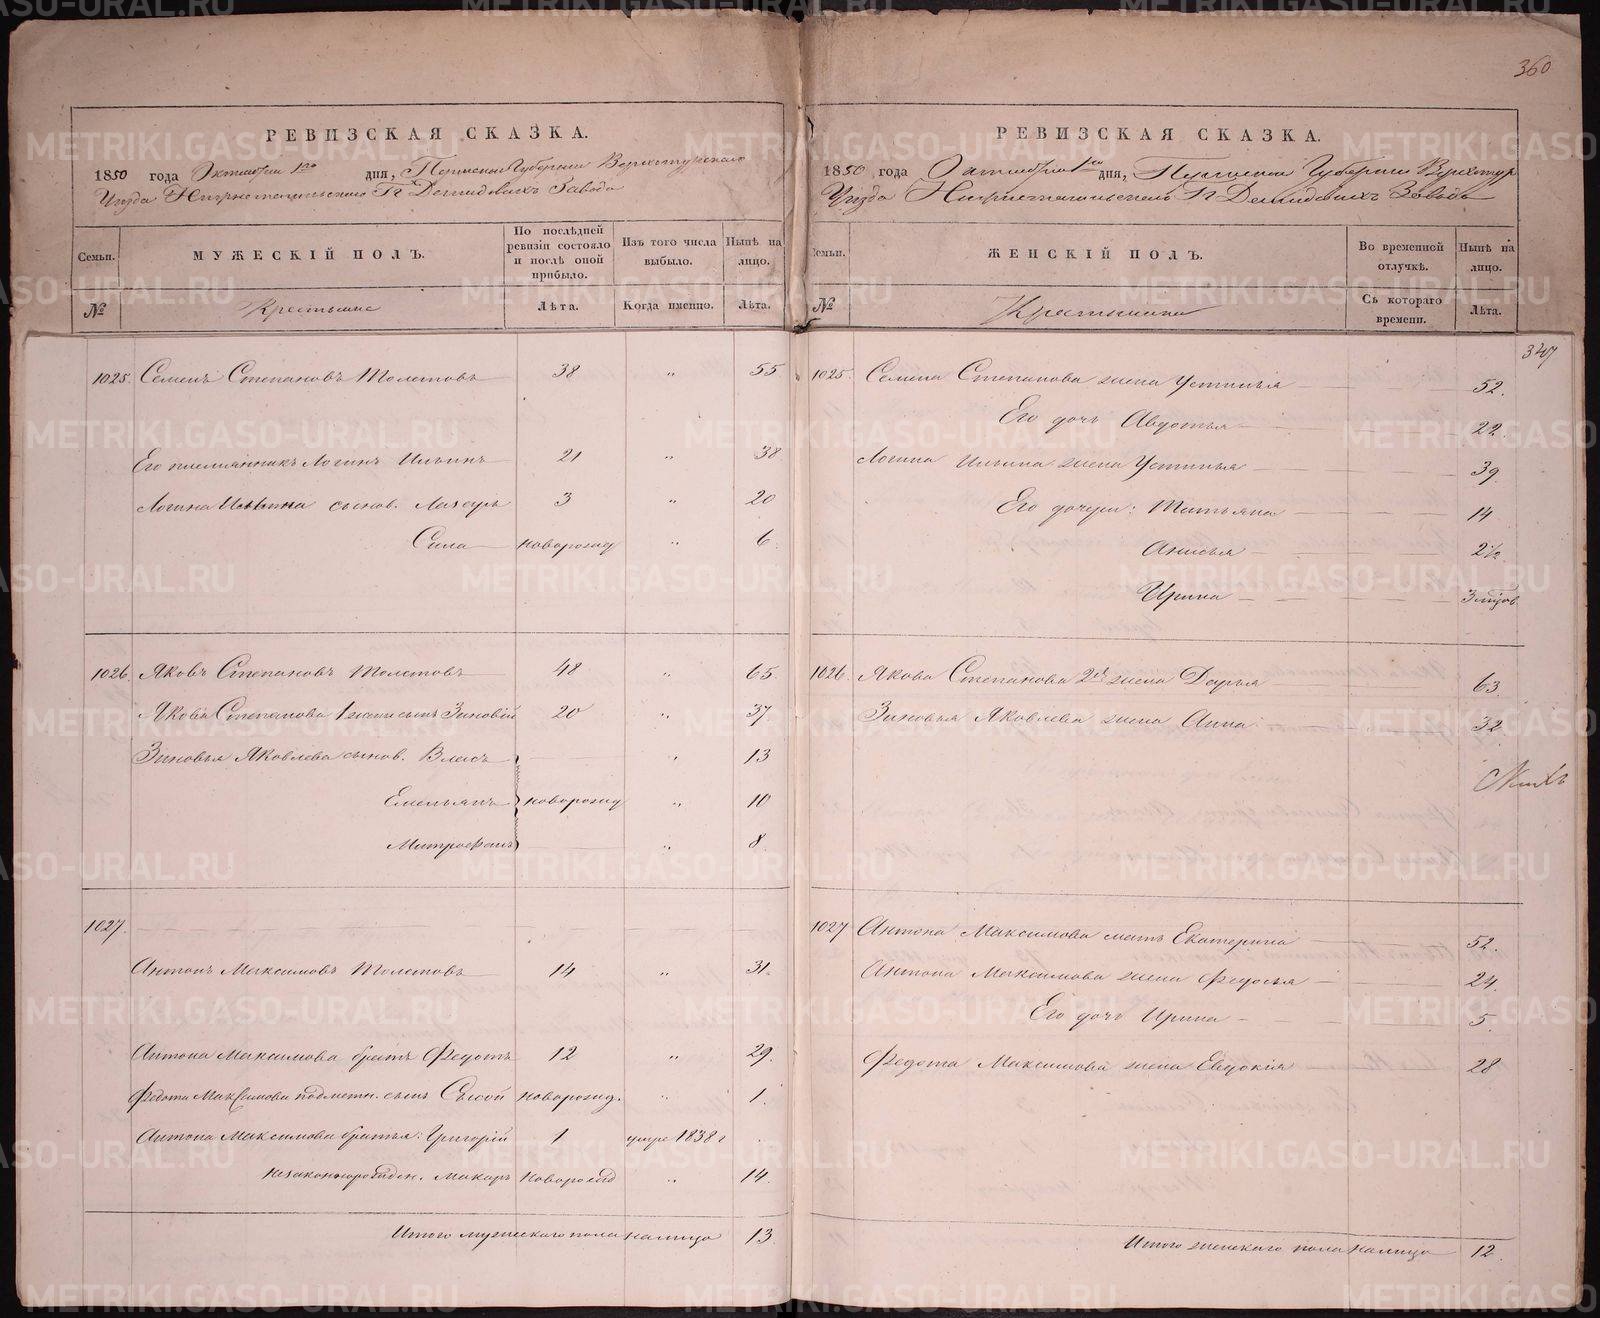 360
РЕВИЗСКАЯ СКАЗКА.
1850 года Октября 1го дня, Пермской Губернии Верхотурского
Уезда Нижнетагильского Гг Демидовыхъ Завода
Семьи.
МУЖЕСКІЙ ПОЛЪ.
По послѣдней ревизіи состояло и послѣ оной прибыло.
Изъ того числа выбыло.
Нынѣ на лицо.
№
Крестьяне
Лѣта.
Когда именно.
Лѣта.
1025. Семенъ Степановъ Толстовъ 38 „ 55
Его племянникъ Логинъ Ильинъ 21 „ 38
Логина Ильина сынов. Лазарь 3 „ 20
Сила новорожд „ 6
1026. Яковъ Степановъ Толстовъ 48 „ 65.
Якова Степанова 1 жены сынъ Зиновій 20 „ 37
Зиновья Яковлева сынов. Власъ „ 13
Емельянъ новорожд „ 10
Митрофанъ „ 8
1027.
Антонъ Максимовъ Толстовъ 14 „ 31.
Антона Максимова братъ Федотъ 12 „ 29.
Федота Максимова подметн. сынъ Сысой новорожд. „ 1.
Антона Максимова братья: Григорій 1 умре 1838 г
незаконнорожден. Макаръ новорожд „ 14.
Итого мужескаго пола налицо 13
РЕВИЗСКАЯ СКАЗКА.
1850 года Октября 1го дня, Пермской Губерніи Верхотур
Уезда Нижнетагильского Гг Демидовыхъ Завода
Семьи.
ЖЕНСКІЙ ПОЛЪ.
Во временной отлучкѣ.
Нынѣ на лицо.
№
Крестьянки
Съ котораго времени.
Лѣта.
347
1025. Семена Степанова жена Устинья 52.
Его дочь Авдотья 22.
Логина Ильина жена Устинья 39
Его дочери: Татьяна 14
Анисья 2½
Ирина 3 мѣсяцов
1026. Якова Степанова 2я жена Дарья 63
Зиновья Яковлева жена Анна 32.
1027 Антона Максимова мать Екатерина 52.
Антона Максимова жена Федосья 24.
Его дочь Ирина 5.
Федота Максимова жена Евдокія 28
Итого женскаго пола налицо 12.
METRIKI.GASO-URAL.RU